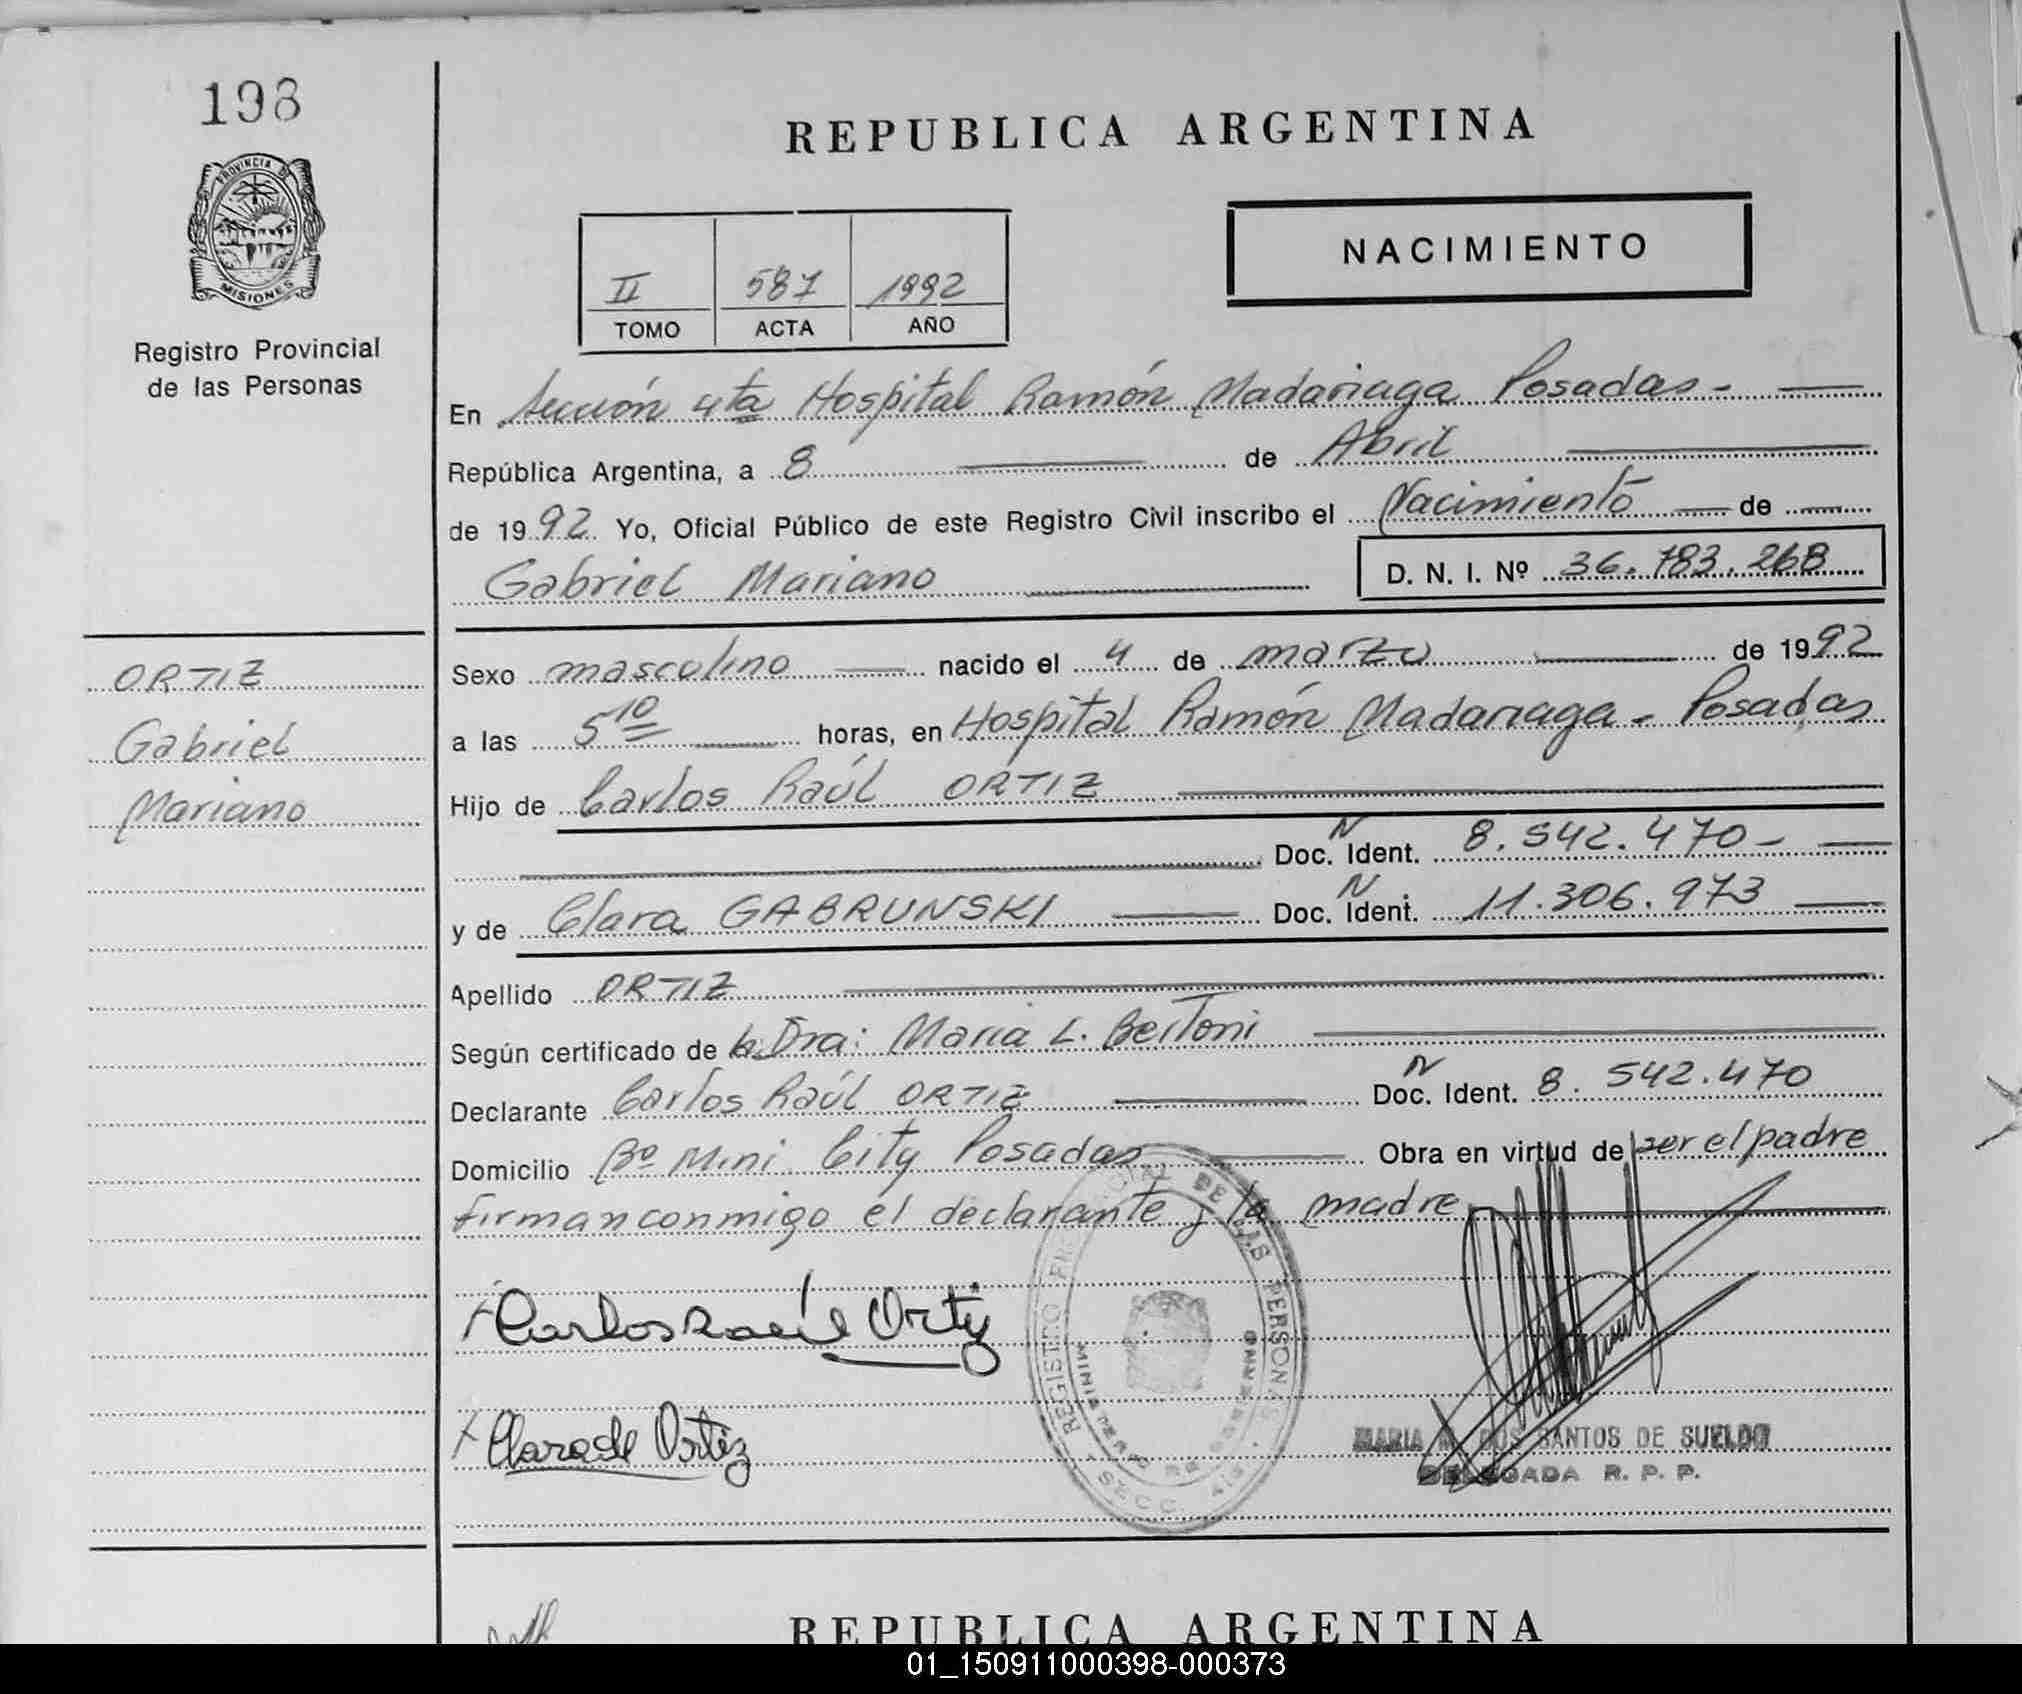 198
PROVINCIA DE
MISIONES
Registro Provincial
de las Personas
REPUBLICA ARGENTINA
NACIMIENTO
II 587 1992
TOMO ACTA AÑO
En Sección 4ta Hospital Ramón Madariaga Posadas-
República Argentina, a 8 de Abril
de 1992 Yo, Oficial Público de este Registro Civil inscribo el Nacimiento de
Gabriel Mariano D. N. I. Nº 36.783.268
ORTIZ
Gabriel
Mariano
Sexo masculino nacido el 4 de marzo de 1992
a las 5 10 horas, en Hospital Ramón Madariaga - Posadas
Hijo de Carlos Raúl ORTIZ
N
Doc. Ident. 8.542.470-
N
y de Clara GABRUNSKI Doc. Ident. 11.306.973
Apellido ORTIZ
Según certificado de la Dra: Maria L. Bertoni
N
Declarante Carlos Raúl ORTIZ Doc. Ident. 8.542.470
Domicilio Bº Mini City Posadas Obra en virtud de ser el padre
firman conmigo el declarante y la madre
Carlos Raúl Ortiz
Clara de Ortiz
REGISTRO PROVINCIAL DE LAS PERSONAS
SECC. 4ta
MARIA DOS SANTOS DE SUELDO
DELEGADA R. P. P.
REPUBLICA ARGENTINA
01_150911000398-000373